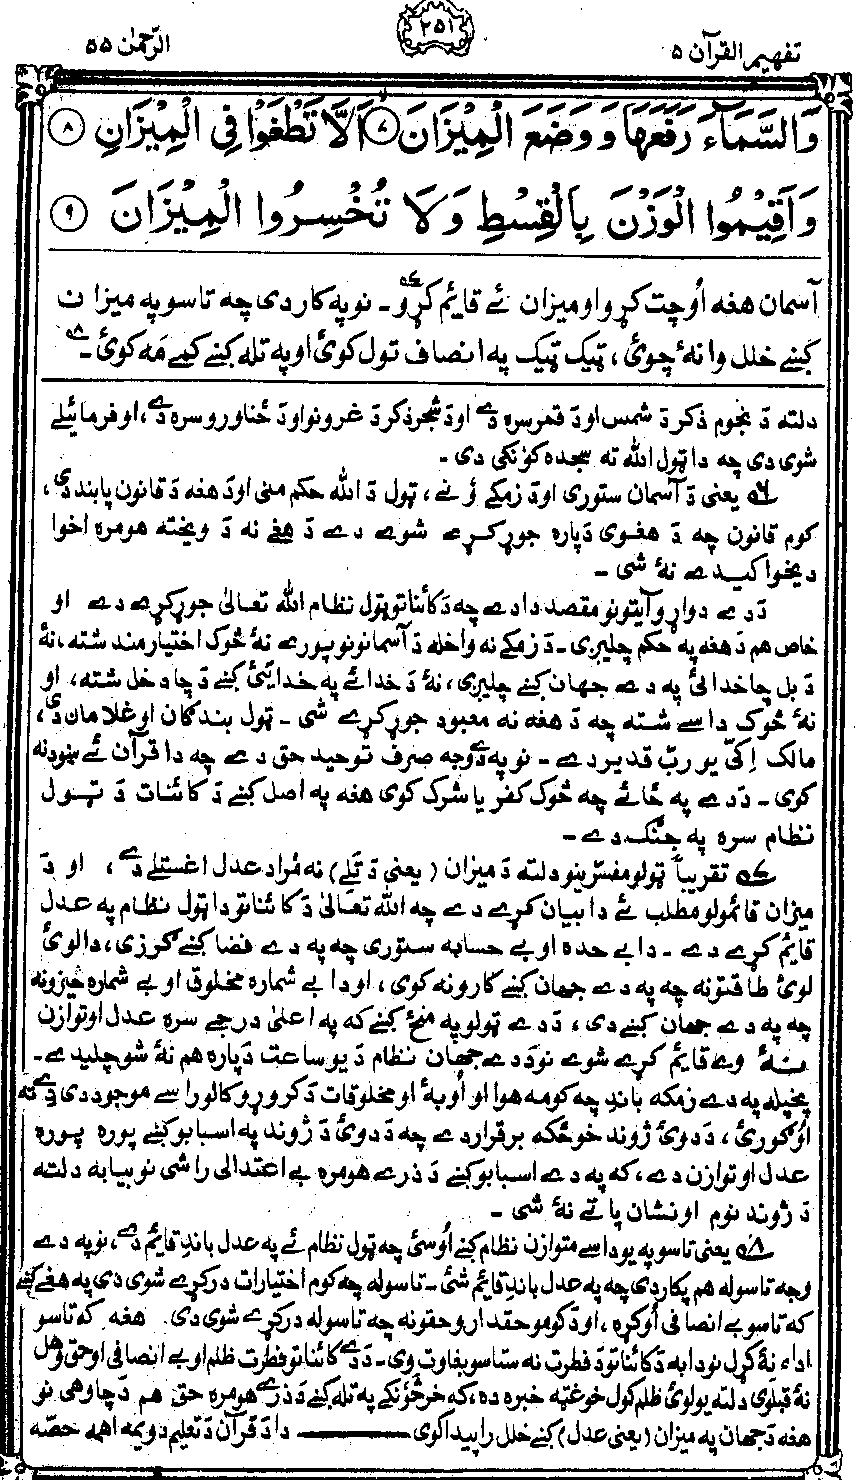 تفهيم القرآن ۵
۲۵۱
الرّحمٰن ۵۵
وَالسَّمَآءَ رَفَعَهَا وَوَضَعَ الْمِيْزَانَ ﴿۷﴾ اَلَّا تَطْغَوْا فِى الْمِيْزَانِ ﴿۸﴾
وَاَقِيْمُوا الْوَزْنَ بِالْقِسْطِ وَلَا تُخْسِرُوا الْمِيْزَانَ ﴿۹﴾
آسمان هغه اُوچت کړو او ميزان ئے قايم کړو۔ نو په کار دى چه تاسو په ميزان
کښے خلل وا نۀ چوئ، ټيک ټيک په انصاف تول کوئ او په تله کښے کمے مَه کوئ۔
دلته دَ نجوم ذکر دَ شمس او دَ قمر سره دے او دَ شجر ذکر دَ غرونو او دَ ځناورو سره دے، او فرمائيلے
شوى دى چه دا ټول الله ته سجده کوُنکى دى۔
يعنى دَ آسمان ستورى او دَ زمکے وُنے، ټول دَ الله حکم منى او دَ هغه دَ قانون پابند دى،
کوم قانون چه دَ هغوى دَپاره جوړ کرے شوے دے دَ هغے نه دَ ويښته هومره اخوا
ديخوا کيدے نۀ شى۔
دَ دے دواړو آيتونو مقصد دا دے چه دَ کائناتو ټول نظام الله تعالىٰ جوړ کرے دے او
خاص هم دَ هغه په حکم چليږى۔ دَ زمکے نه واخله دَ آسمانونو پورے نۀ څوک اختيارمند شته، نۀ
دَ بل چا خدائى په دے جهان کښے چليږى، نۀ دَ خدائے په خدايئ کښے دَ چا دخل شته، او
نۀ څوک داسے شته چه دَ هغه نه معبود جوړ کرے شى۔ ټول بندګان او غلامان دى،
مالک اِکى يو ربّ قدير دے۔ نو په دے وجه صرف توحيد حق دے چه دا قرآن ئے ښودنه
کوى۔ دَ دے په ځائے چه څوک کفر يا شرک کوى هغه په اصل کښے دَ کائنات دَ ټول
نظام سره په جنګ دے۔
تقريباً ټولو مفسّرينو دلته دَ ميزان (يعنى دَ تَلے) نه مُراد عدل اغستلے دے، او دَ
ميزان قائمولو مطلب ئے دا بيان کرے دے چه الله تعالىٰ دَ کائناتو دا ټول نظام په عدل
قايم کرے دے۔ دا بے حده او بے حسابه ستورى چه په دے فضا کښے ګرزى، دا لوئ
لوئ طاقتونه چه په دے جهان کښے کارونه کوى، او دا بے شماره مخلوق او بے شماره څيزونه
چه په دے جهان کښے دى، دَ دے ټولو په منځ کښے که په اعلىٰ درجے سره عدل او توازن
نۀ وے قايم کرے شوے نو دَ دے جهان نظام دَ يو ساعت دَپاره هم نۀ شو چليدے۔
پخپله په دے زمکه باندِ چه کومه هوا او اُوبۀ او مخلوقات دَ کروړو کالو راسے موجود دى دے ته
اوګورئ، دَ دوئ ژوند خو ځکه برقرار دے چه دَ دوئ دَ ژوند په اسبابو کښے پوره پوره
عدل او توازن دے، که په دے اسبابو کښے دَ ذرے هومره بے اعتدالى راشى نو بيا به دلته
دَ ژوند نوم او نشان پاتے نۀ شى۔
يعنى تاسو په يو داسے متوازن نظام کښے اُوسئ چه ټول نظام ئے په عدل باندِ قايم دے، نو په دے
وجه تاسو له هم پکار دى چه په عدل باندِ قايم شئ۔ تاسو له چه کوم اختيارات درکړے شوى دى په هغے کښے
که تاسو بے انصافى اُوکره، او دَ کومو حقدارو حقونه چه تاسو له درکړے شوى دى. هغه که تاسو
اداء نۀ کړل نو دا به دَ کائناتو دَ فطرت نه ستاسو بغاوت وى۔ دَ دے کائناتو فطرت ظلم او بے انصافى او حق وهل
نۀ قبلوى دلته يو لوئ ظلم کول خو غټه خبره ده، که خرڅونکے په تله کښے دَ ذرے هومره حق هم دَ چا وهى نو
هغه دَ جهان په ميزان (يعنى عدل) کښے خلل راپيدا کوى ——— دا دَ قرآن دَ تعليم دويمه اهمه حصّه